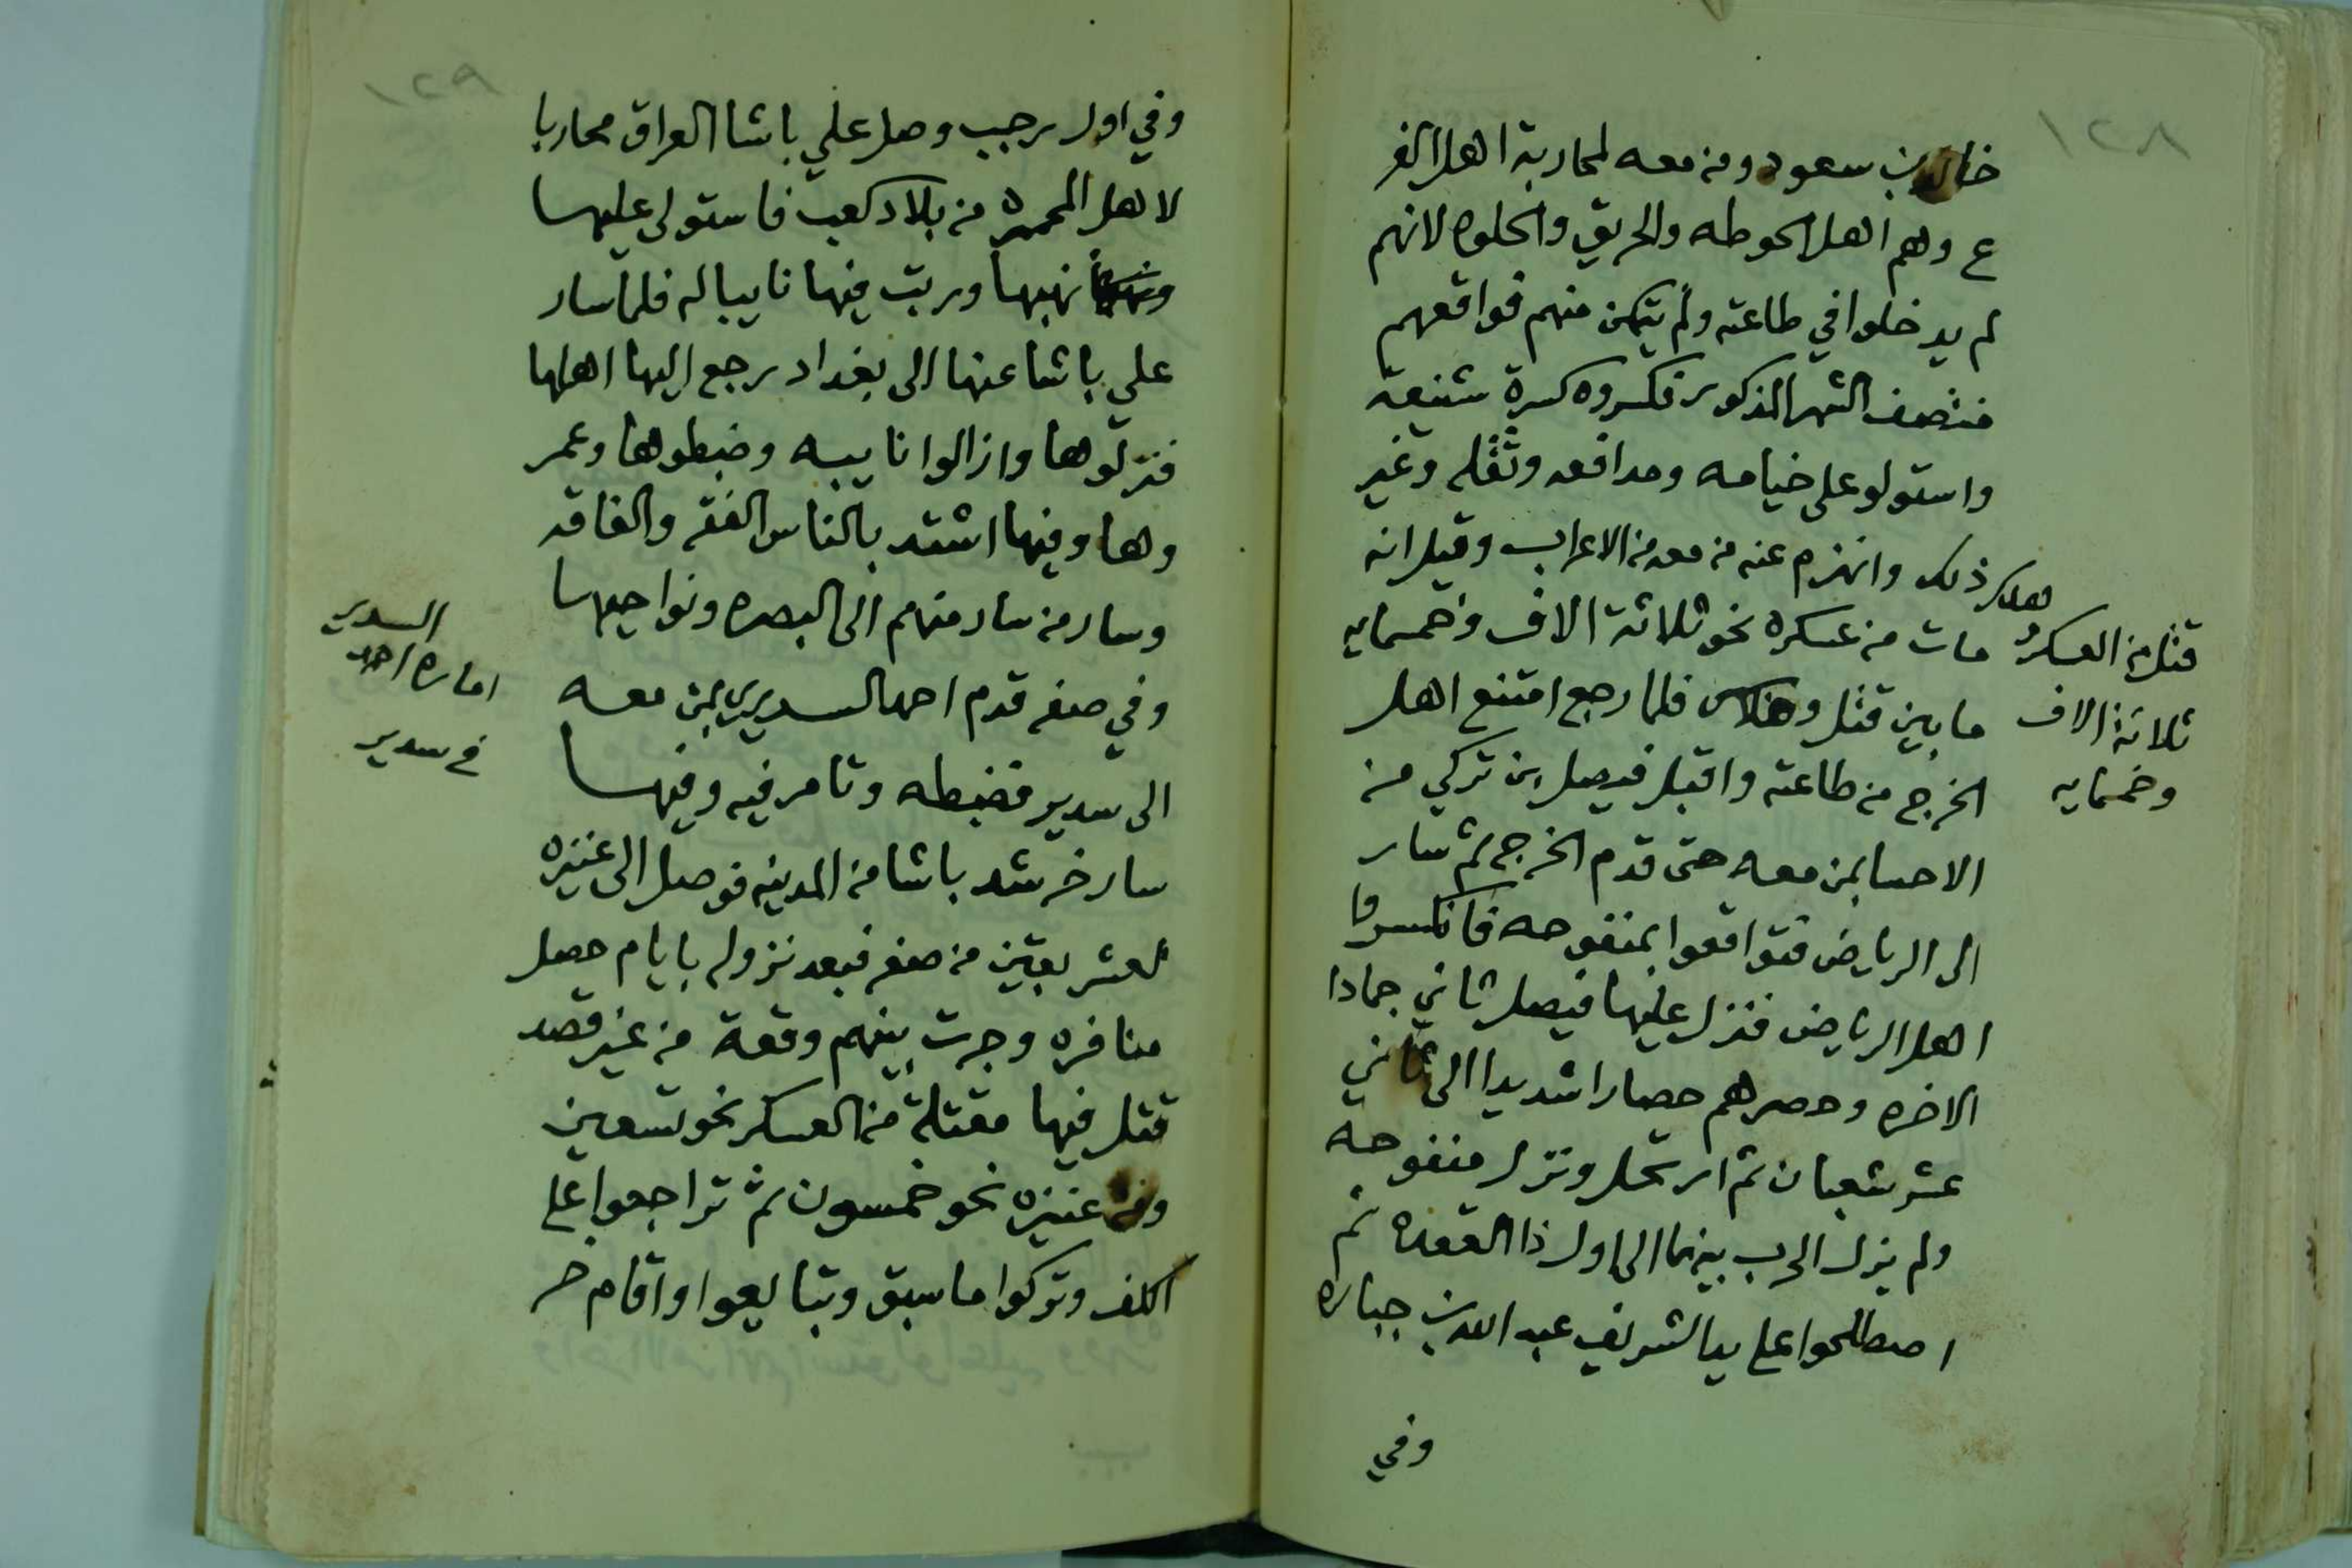 ١٢٨
خالد بن سعود ومن معه لمحاربة اهل الفر
ع وهم اهل الحوطه والحريق والحلوه لانهم
لم يدخلوا في طاعته ولم يتمكن منهم فواقعهم
منتصف الشهر المذكور فكسروه كسرة شنيعة
واستولو على خيامه ومدافعه وثقله وغير
ذلك وانهزم عنه من معه من الاعراب وقيل انه
مات من عسكره نحو ثلاثة الاف وخمسمايه
ما بين قتل وهلاك فلما رجع امتنع اهل
الخرج من طاعته واقبل فيصل بن تركي من
الاحسا بمن معه حتى قدم الخرج ثم سار
الى الرياض فتواقعوا بمنفوحه فانكسروا
اهل الرياض فنزل عليها فيصل ثاني جمادا
الاخره وحصرهم حصارا شديدا الى ثاني
عشر شعبان ثم ارتحل ونزل منفوحه
ولم يزل الحرب بينهما الى اول ذا القعده ثم
اصطلحوا على يد الشريف عبد الله بن جباره
وفي
قتل من العسكر
ثلاثة الاف
وخمسمايه
١٢٩
وفي اول رجب وصل علي باشا العراق محاربا
لاهل المحمره من بلاد كعب فاستولى عليها
نهبها ورتب فيها نايبا له فلما سار
علي باشا عنها الى بغداد رجع اليها اهلها
فنزلوها وازالوا نايبه وضبطوها وعمر
وها وفيها اشتد بالناس الفقر والفاقه
وسار من سار منهم الى البصره ونواحيها
وفي صفر قدم احمد السديري بمن معه
الى سدير فضبطه وتامر فيه وفيها
سار خرشد باشا من المدينه فوصل الى عنيزه
لعشر بقين من صفر فبعد نزوله بايام حصل
منافره وجرت بينهم وقعة من غير قصد
قتل فيها مقتلة من العسكر نحو تسعين
ومن عنيزه نحو خمسون ثم تراجعوا على
الكف وتركوا ما سبق وتبايعوا واقام خر
السدير
اماره احمد
في سدير